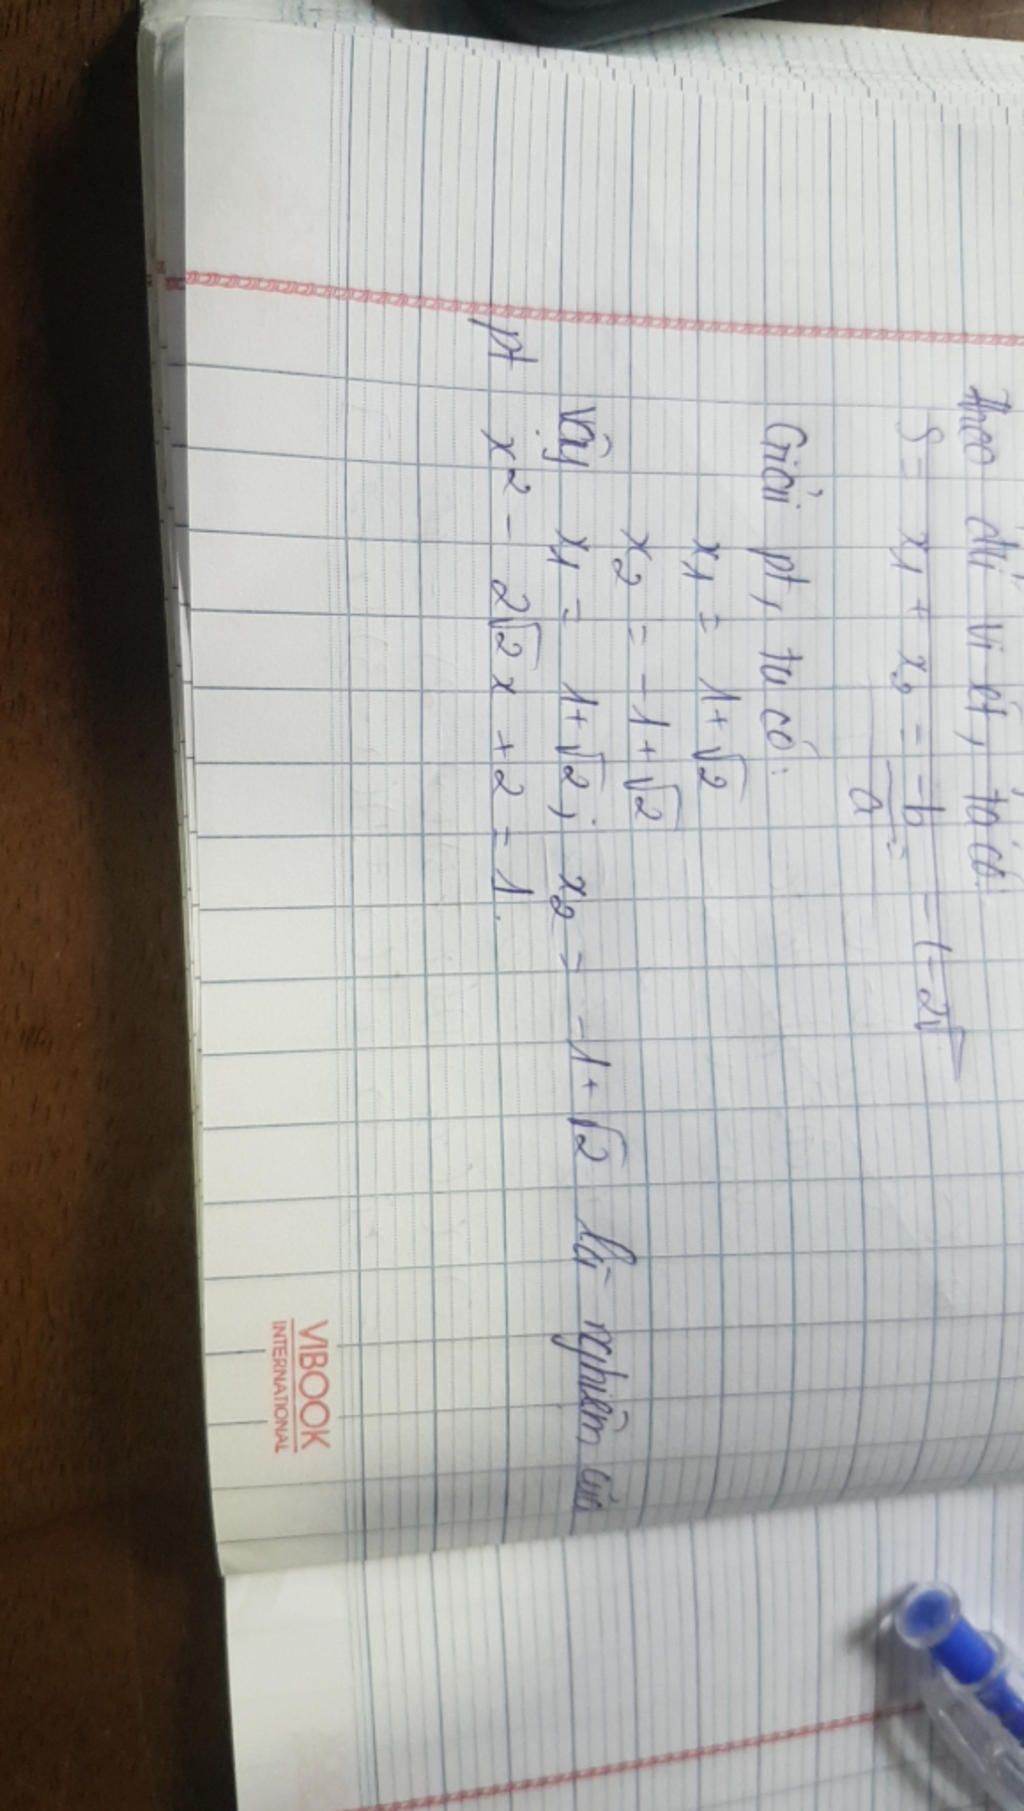 theo đl Vi-ét, ta có:
S = x₁ + x₂ = -b/a = -(-2√
Giải pt, ta có:
x₁ = 1+√2
x₂ = -1+√2
Vậy x₁ = 1+√2; x₂ = -1+√2 là nghiệm của
pt x² - 2√2x + 2 = 1.
VIBOOK
INTERNATIONAL